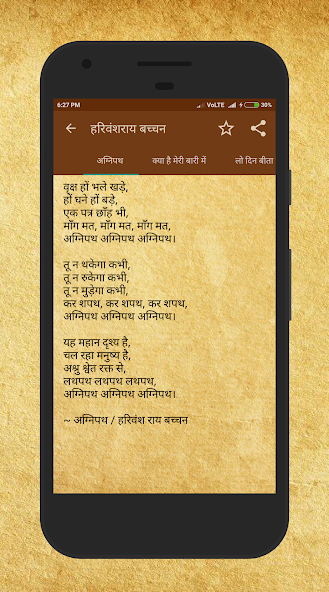 6:27 PM VoLTE 30%
हरिवंशराय बच्चन
अग्निपथ क्या है मेरी बारी में लो दिन बीता
वृक्ष हों भले खड़े,
हों घने हों बड़े,
एक पत्र छाँह भी,
माँग मत, माँग मत, माँग मत,
अग्निपथ अग्निपथ अग्निपथ।
तू न थकेगा कभी,
तू न रुकेगा कभी,
तू न मुड़ेगा कभी,
कर शपथ, कर शपथ, कर शपथ,
अग्निपथ अग्निपथ अग्निपथ।
यह महान दृश्य है,
चल रहा मनुष्य है,
अश्रु श्वेत रक्त से,
लथपथ लथपथ लथपथ,
अग्निपथ अग्निपथ अग्निपथ।
~ अग्निपथ / हरिवंश राय बच्चन